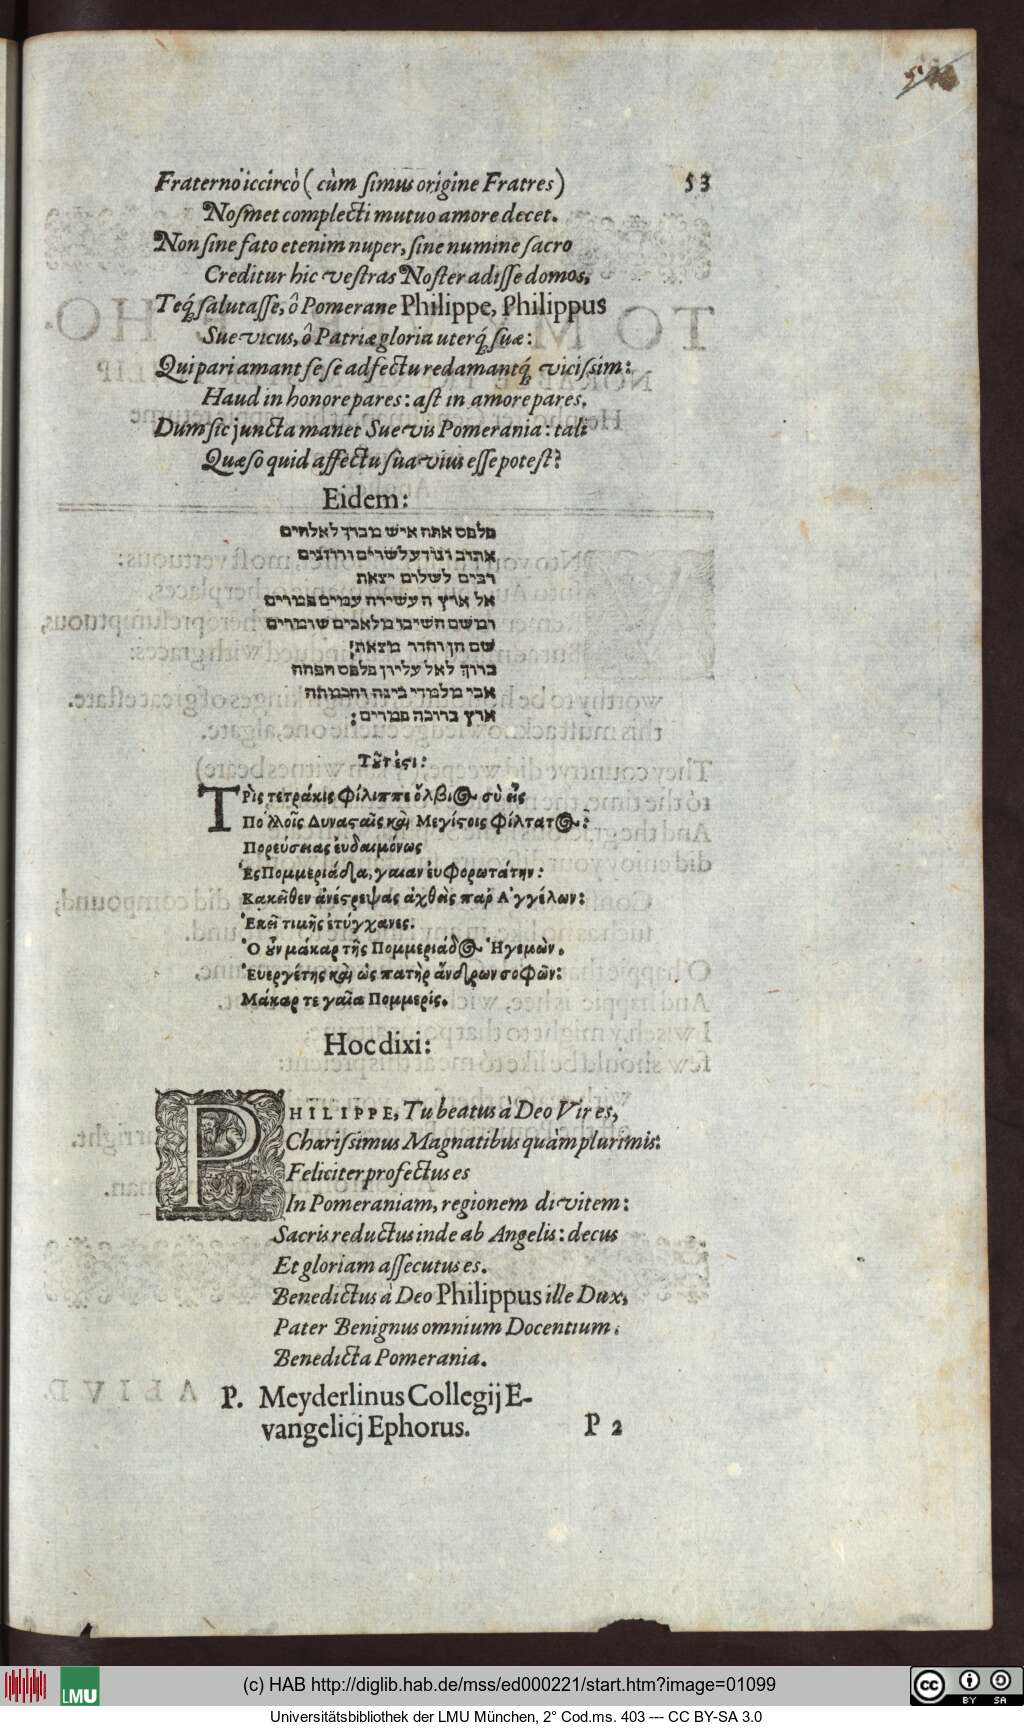 53
Fraternò iccircò ( cùm ſimus origine Fratres )
Noſmet complecti mutuo amore decet.
Non ſine fato etenim nuper, ſine numine ſacro
Creditur hic veſtras Noſter adiſſe domos,
Teq́ ſalutaſſe, ô Pomerane Philippe, Philippus
Suevicus, ô Patriæ gloria uterq́ ſuæ:
Qui pari amant ſeſe adfectu redamantq́ viciſsim:
Haud in honore pares: aſt in amore pares.
Dum ſic juncta manet Suevis Pomerania: tali
Quæſo quid affectu ſuavius eſſe poteſt?
Eidem:
פלפס אתה איש מברך לאלהים
אהוב ונודע לשרים ורוזנים
רבים לשלום יצאת
אל ארץ העשירה עמים פמרים
ומשם השיבו מלאכים שומרים
שם חן והדר מצאת:
ברוך לאל עליון פלפס הפחה
אבי מלמדי בינה וחכמתה
ארץ ברוכה פמרים:
Τȣ̃τ ἐςι:
Τρὶς τετράκις Φίλιππε ὄλβιος σὺ εἶς
Πολλοῖς Δυνάςαις καὶ Μεγίςοις φίλτατος:
Πορεύσειας ἐυδαιμόνως
Ἐς Πομμεριάδα, γαιαν ἐυφορωτάτην:
Κακεῖθεν ἀνέςρεψας ἀχθεὶς παρ Ἀγγέλων:
Ἐκεῖ τιμῆς ἐτύγχανες.
Ὁ ȣ̓ν μάκαρ τῆς Πομμεριάδος Ἡγεμὼν.
Ἐυεργέτης καὶ ὡς πατὴρ ἄνδρων σοφῶν:
Μάκαρ τε γαῖα Πομμερίς.
Hoc dixi:
PHILIPPE, Tu beatus à Deo Vir es,
Chariſsimus Magnatibus quàm plurimis:
Feliciter profectus es
In Pomeraniam, regionem divitem:
Sacris reductus inde ab Angelis: decus
Et gloriam aſſecutus es.
Benedictus à Deo Philippus ille Dux,
Pater Benignus omnium Docentium.
Benedicta Pomerania.
P. Meyderlinus Collegij E-
vangelicj Ephorus.
P 2
(c) HAB http://diglib.hab.de/mss/ed000221/start.htm?image=01099
LMU
BY SA
Universitätsbibliothek der LMU München, 2° Cod.ms. 403 --- CC BY-SA 3.0